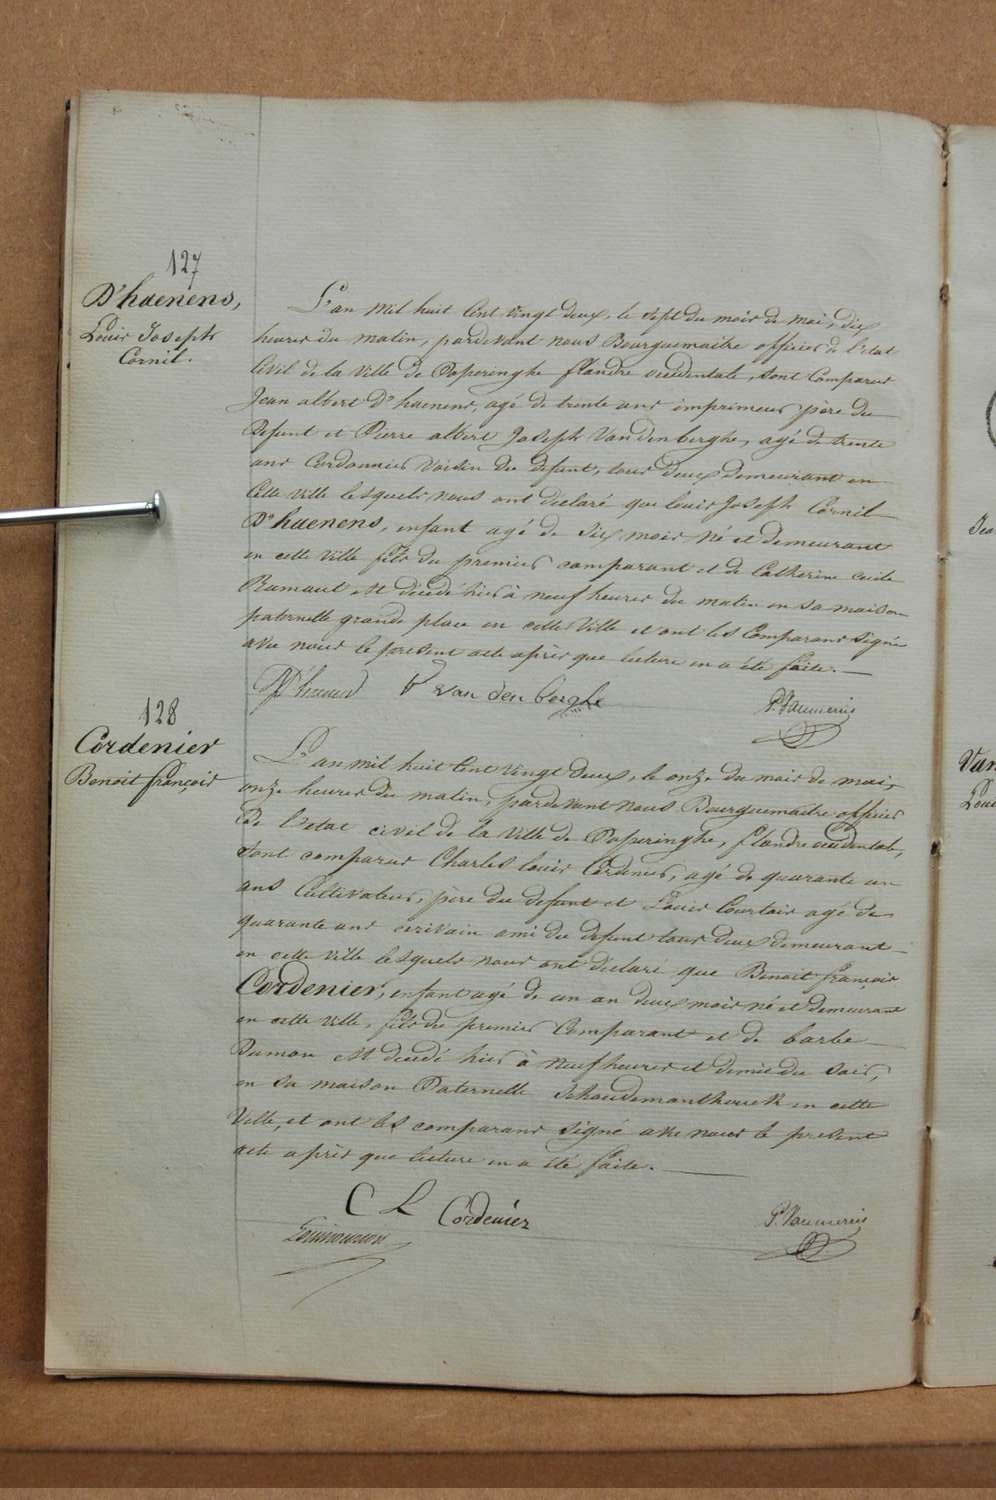 127
D'haenens,
Louis Joseph
Cornil.
L'an mil huit cent vingt deux, le sept du mois de mai, dix
heures du matin, pardevant nous Bourguemaitre officier de l'etat
Civil de la ville de Poperinghe flandre occidentale, sont Comparus
Jean albert D'haenens, agé de trente ans imprimeur père du
Defunt et Pierre albert Joseph Vandenberghe, agé de trente
ans Cordonnier voisin du defunt, tous deux demeurant en
Cette ville lesquels nous ont declaré que louis Joseph Cornil
D'haenens, enfant agé de dix mois né et demeurant
en cette ville fils du premier comparant et de Catherine cecile
est décédé hier à neuf heures du matin en sa maison
paternelle grande place en cette Ville et ont les Comparans signé
avec nous le present acte après que lecture en a été faite.
D'haenens P van den berghe
128
Cordenier
Benoit françois
L'an mil huit cent vingt deux, le onze du mois de mai,
onze heures du matin, pardevant nous Bourguemaitre officier
De l'etat civil de la ville de Poperinghe, flandre occidentale,
sont comparus Charles louis Cordenier, agé de quarante un
ans Cultivateur, père du defunt et Louis Courtois agé de
quarante ans ecrivain ami du defunt tous deux demeurant
en cette ville lesquels nous ont déclaré que Benoit françois
Cordenier, enfant agé de un an deux mois né et demeurant
en cette ville, fils du premier Comparant et de barbe
Dumon est decedé hier à neuf heures et demie du soir,
en sa maison Paternelle en cette
Ville, et ont les comparans signé avec nous le present
acte après que lecture en a été faite.
C L Cordenier
Van
Loui